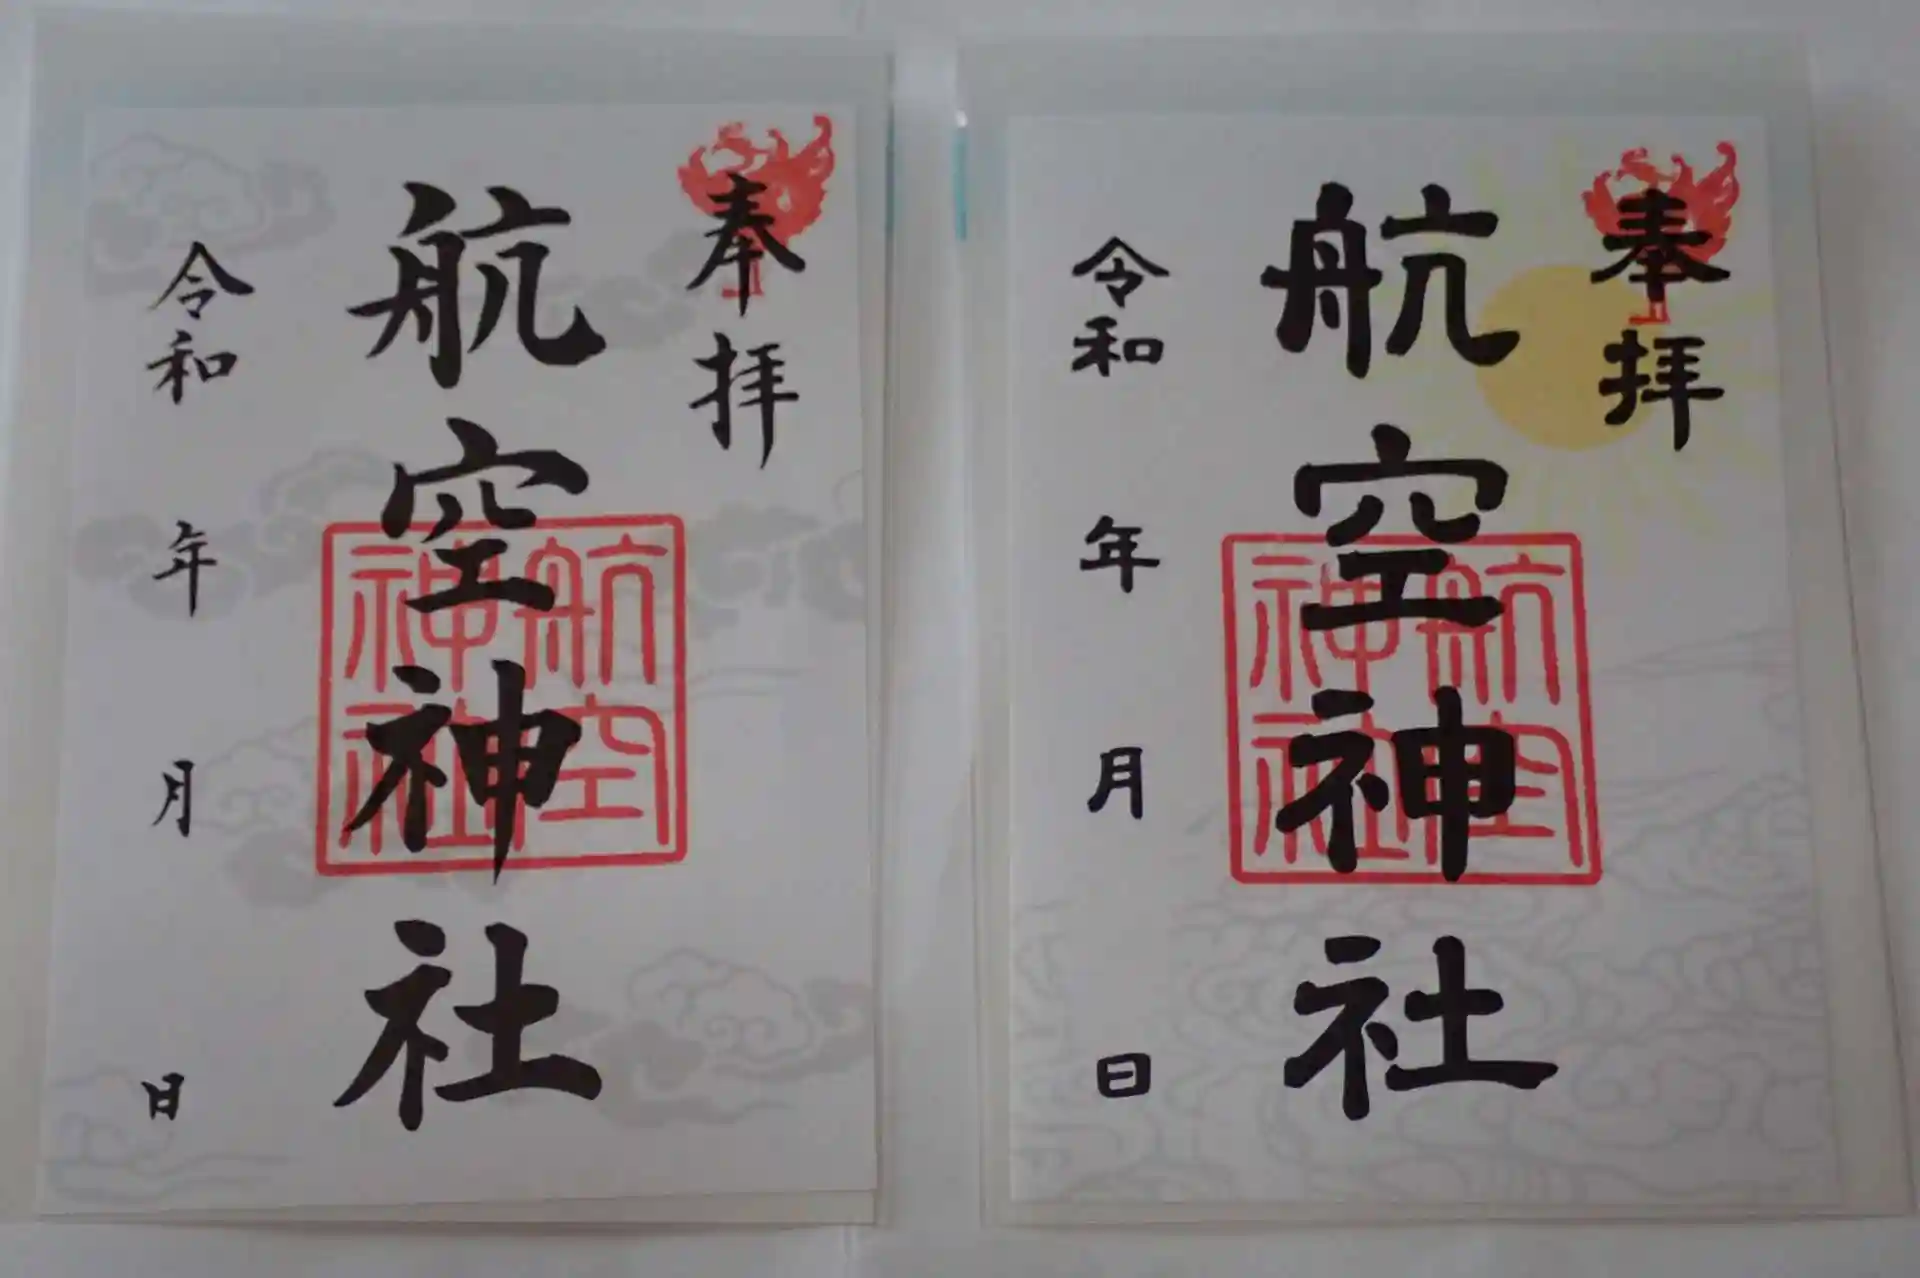 奉拝
航空神社
航空神社
令和 年 月 日
奉拝
航空神社
航空神社
令和 年 月 日